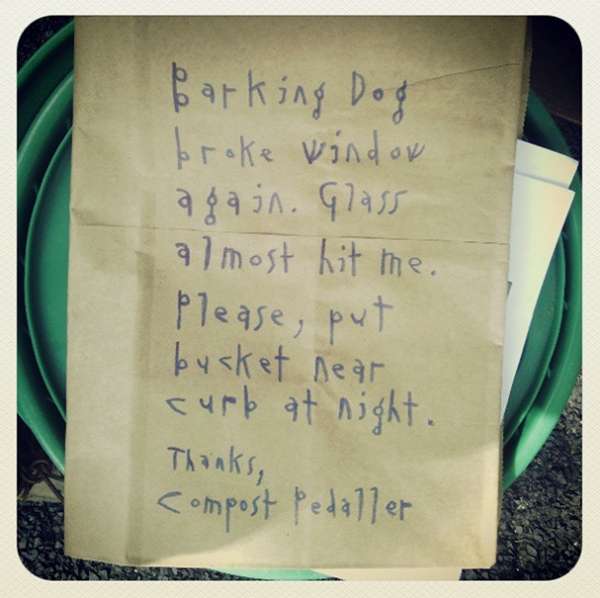 Barking Dog
broke window
again. Glass
almost hit me.
Please, put
bucket near
curb at night.
Thanks,
Compost Pedaller